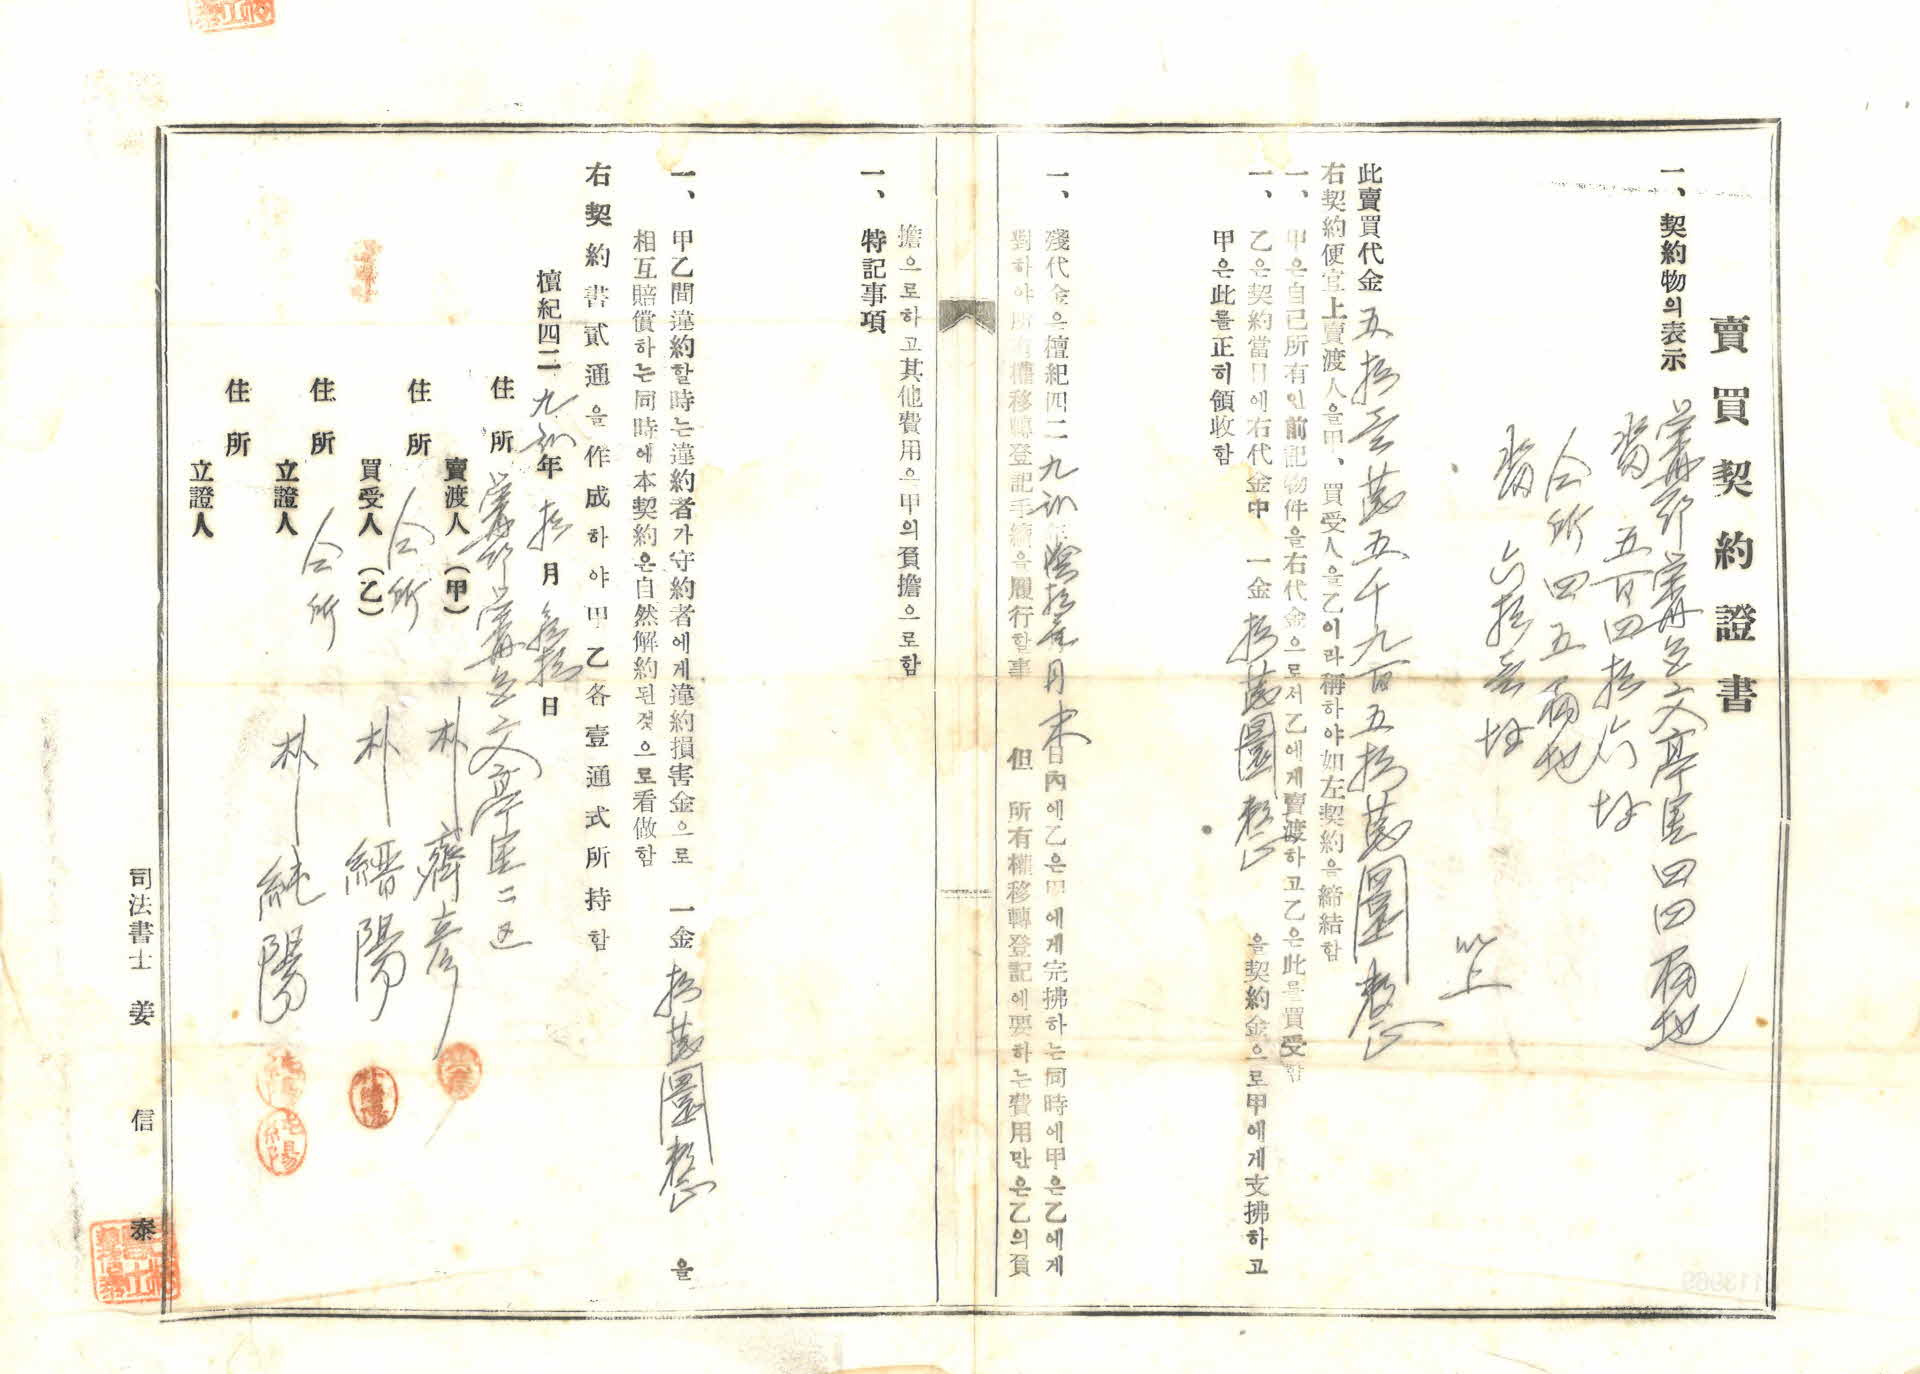 賣買契約證書
一、契約物의表示
五百四拾六坪
仝所四五番地
六拾壹坪
以上
此賣買代金 五拾壹萬五千九百五拾萬圜整
右契約便宜上賣渡人을甲、買受人을乙이라稱하야如左契約을締結함
一、甲은自己所有인前記物件을右代金으로서乙에게賣渡하고乙은此를買受함
一、乙은契約當日에右代金中 一金 拾萬圜整 을契約金으로甲에게支拂하고
甲은此를正히領收함
一、殘代金은檀紀四二九 年陰拾壹月末日內에乙은甲에게完拂하는同時에甲은乙에게
對하야所有權移轉登記手續을履行할事 但 所有權移轉登記에要하는費用만은乙의負
擔으로하고其他費用은甲의負擔으로함
一、特記事項
一、甲乙間違約할時는違約者가守約者에게違約損害金으로 一金 拾萬圜整 을
相互賠償하는同時에本契約은自然解約된것으로看做함
右契約書貳通을作成하야甲乙各壹通式所持함
檀紀四二九 年 拾月 參拾日
住所
賣渡人(甲) 朴齊彦
住所 仝所
買受人(乙) 朴縉陽
住所 仝所
立證人 朴純陽
住所
立證人
司法書士 姜信泰